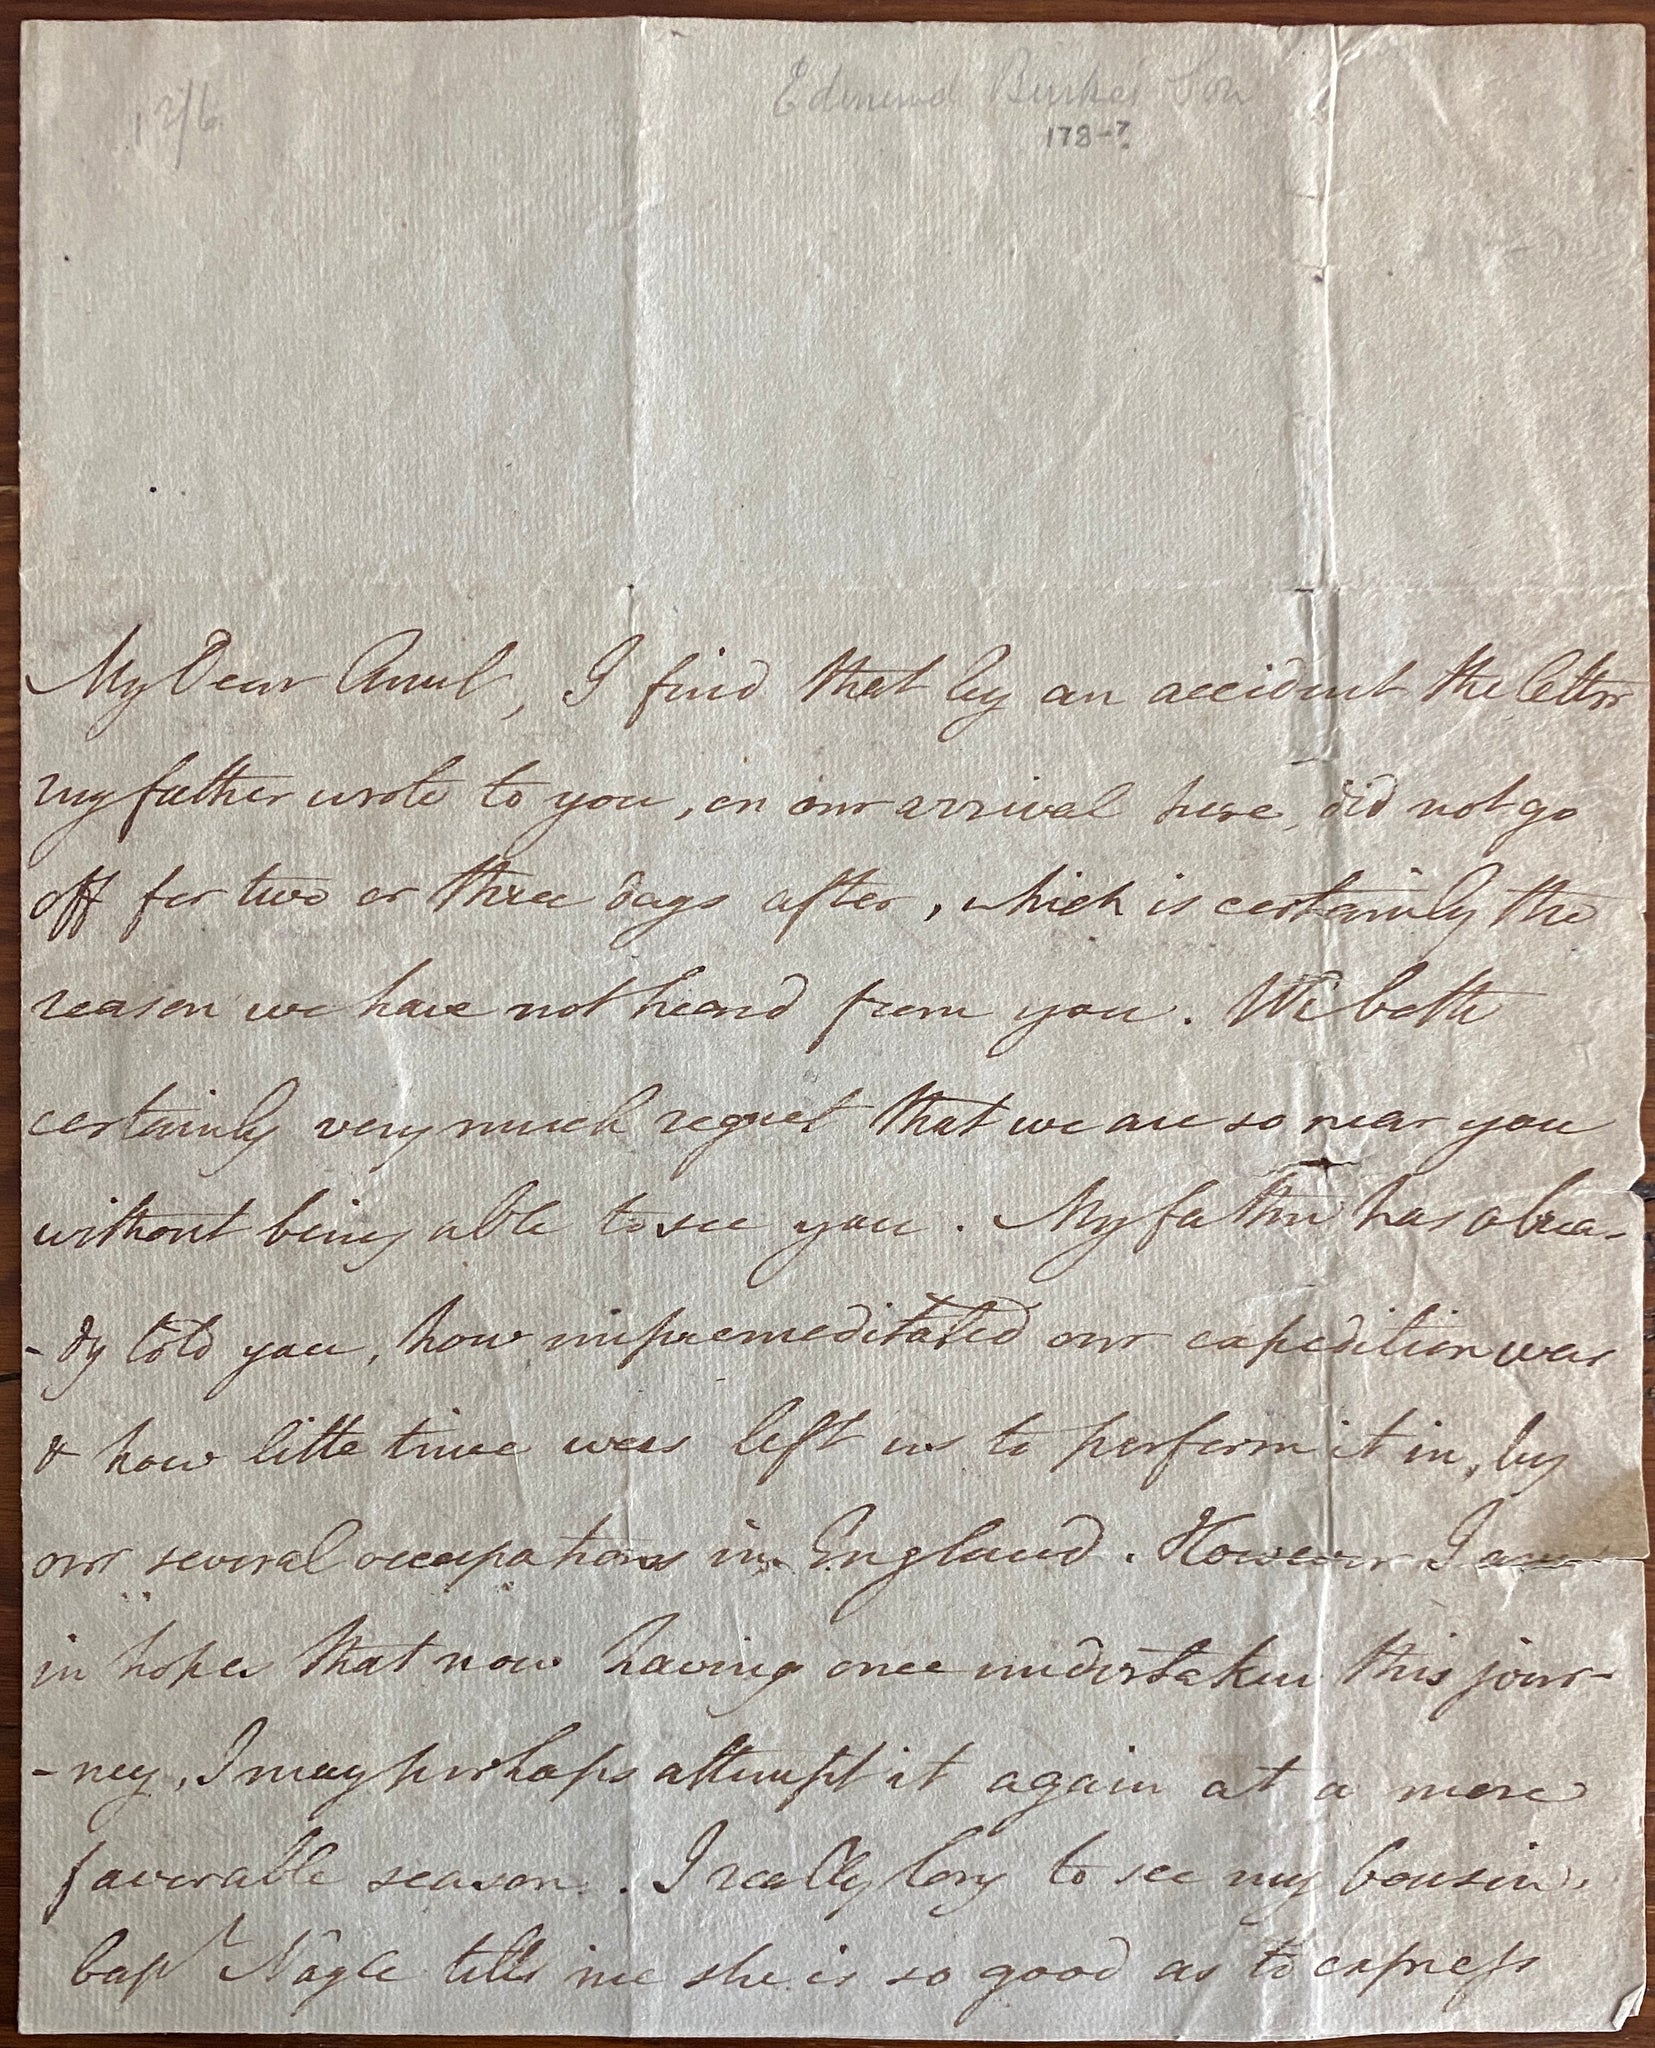 12/6
Edmund Burke's Son
178-?
My Dear Aunt, I find that by an accident the letter
my father wrote to you, on our arrival here, did not go
off for two or three days after, which is certainly the
reason we have not heard from you. We both
certainly very much regret that we are so near you
without being able to see you. My father has alrea-
-dy told you, how unpremeditated our expedition was
& how little time was left us to perform it in, by
our several occupations in England. However I am
in hopes that now having once undertaken this jour-
-ney, I may perhaps attempt it again at a more
favorable season. I really long to see my Cousin.
Capt Nagle tells me she is so good as to express